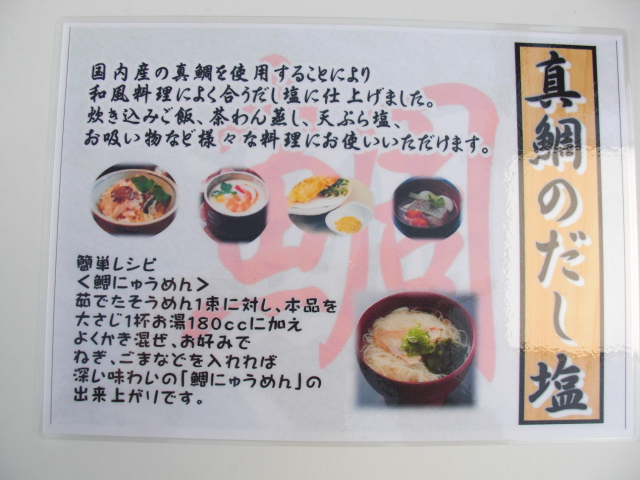 真鯛のだし塩
国内産の真鯛を使用することにより
和風料理によく合うだし塩に仕上げました。
炊き込みご飯、茶わん蒸し、天ぷら塩、
お吸い物など様々な料理にお使いいただけます。
鯛
簡単レシピ
＜鯛にゅうめん＞
茹でたそうめん1束に対し、本品を
大さじ1杯お湯180ccに加え
よくかき混ぜ、お好みで
ねぎ、ごまなどを入れれば
深い味わいの「鯛にゅうめん」の
出来上がりです。